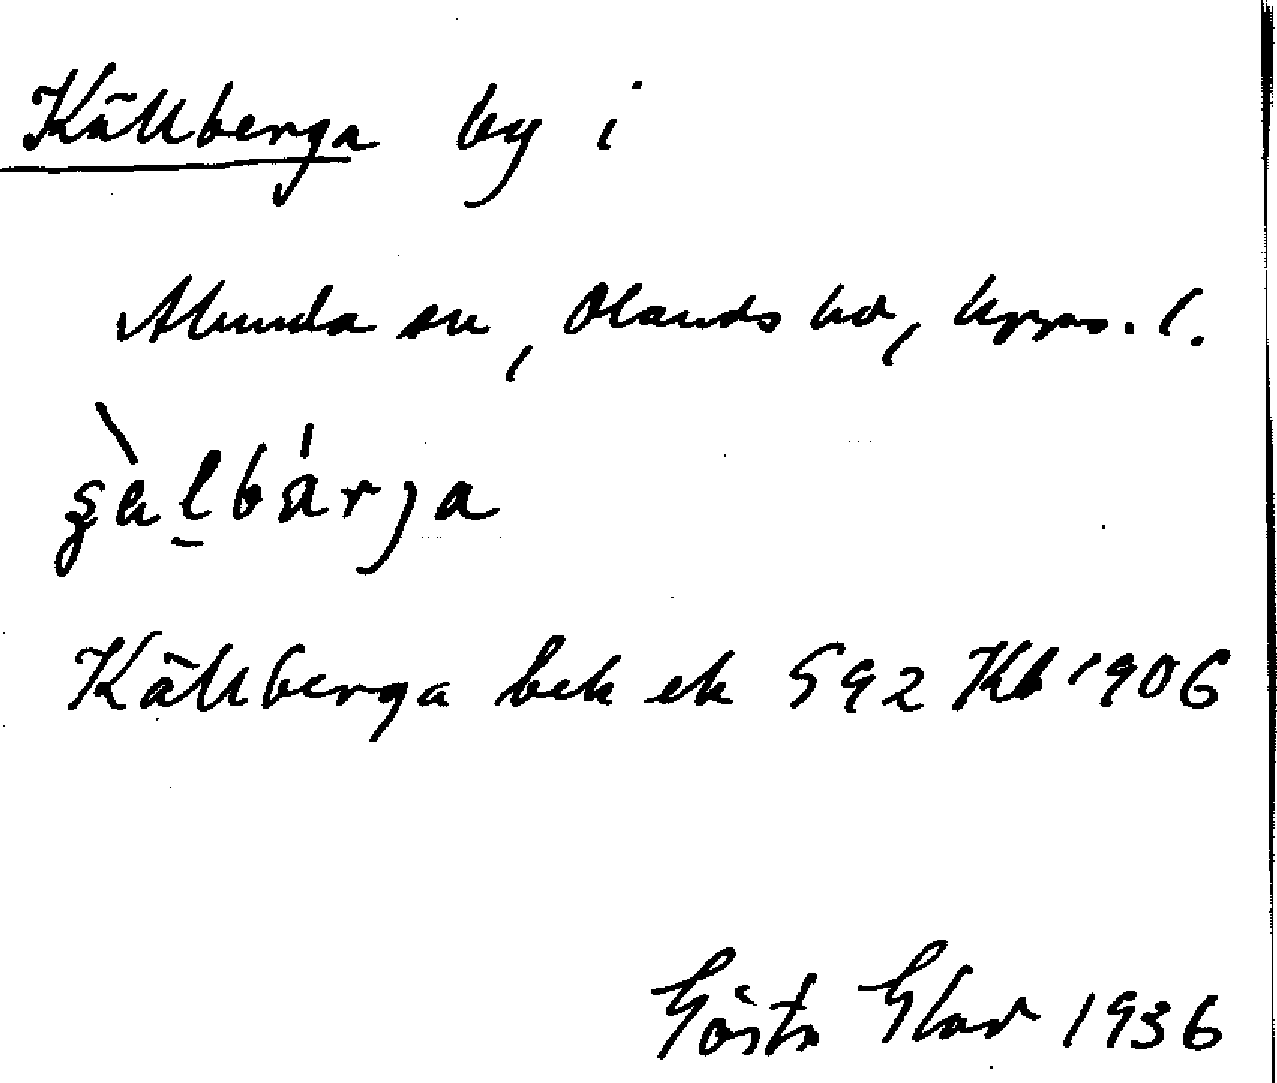 Källberga by i
Alunda sn, Olands hd, Upps. l.
ʂàl̲bárja
Källberga bek ek 592 Kb 1906
Gösta 1936